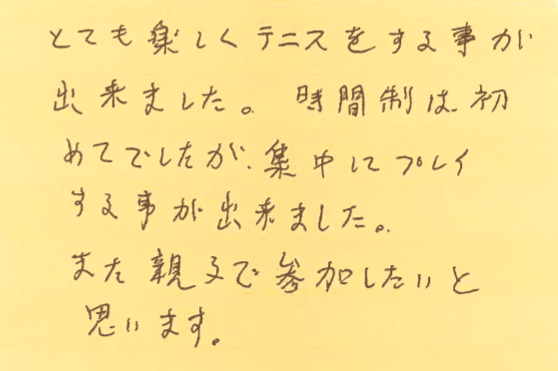 とても楽しくテニスをする事が
出来ました。 時間制は初
めてでしたが、集中にプレイ
する事が出来ました。
また親子で参加したいと
思います。